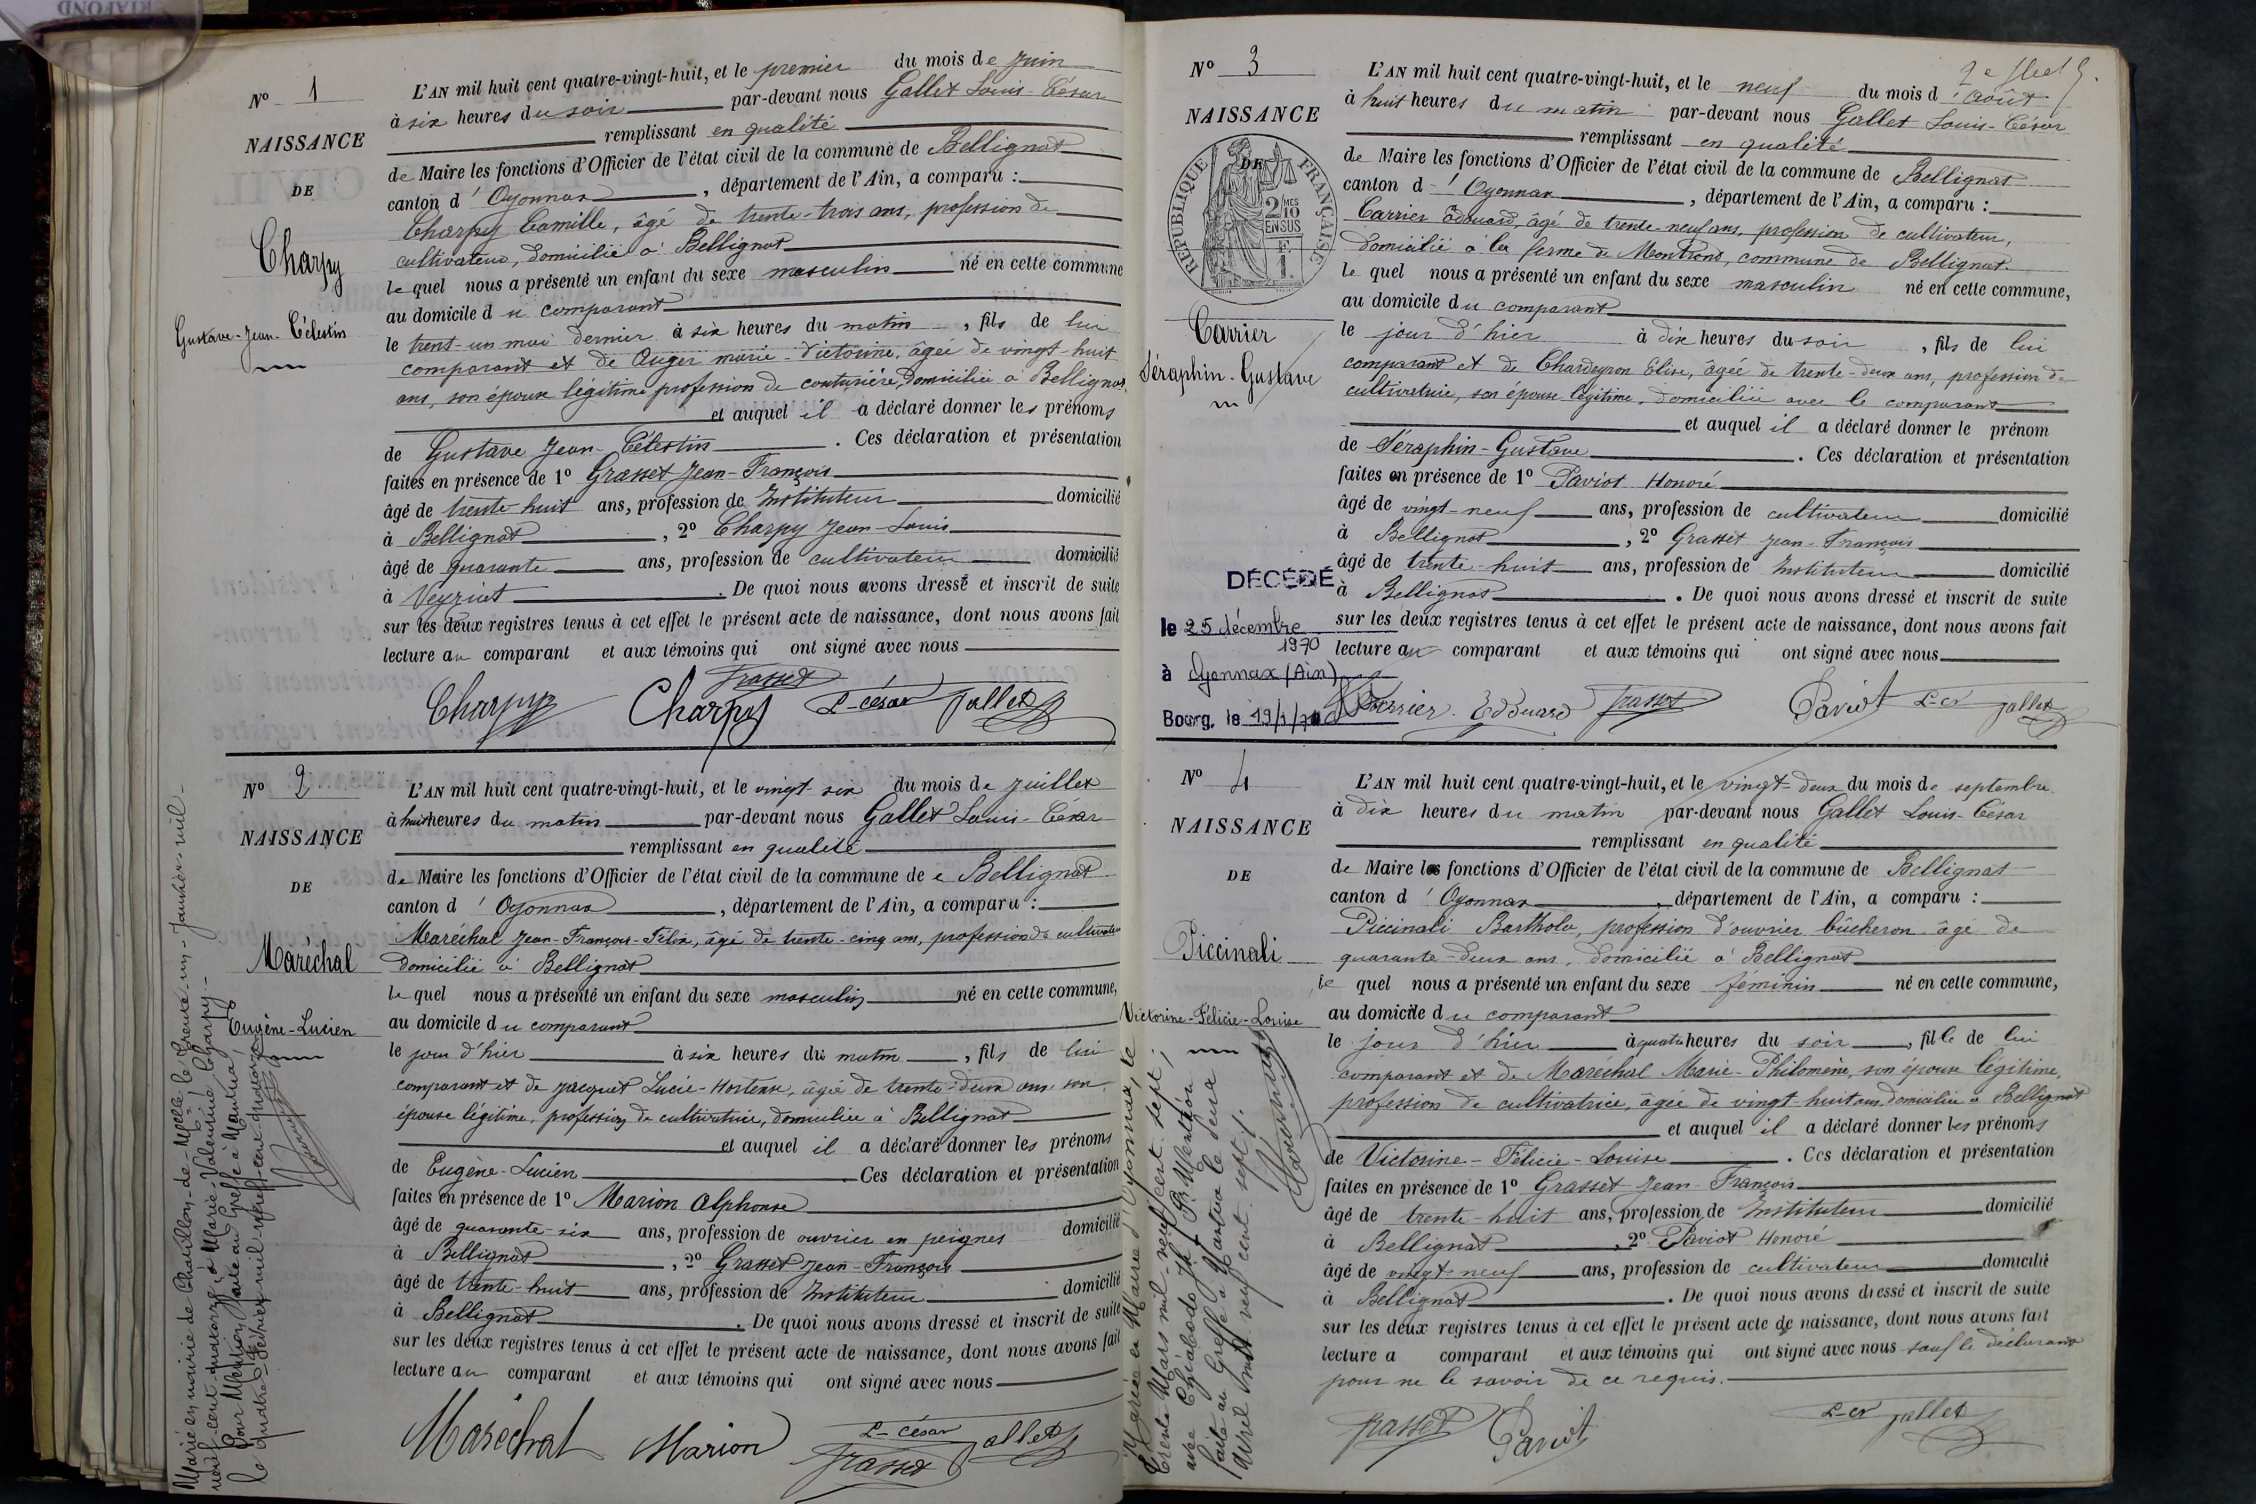 N° 1
NAISSANCE
DE
Charpy
Gustave-Jean-Célestin
L'AN mil huit cent quatre-vingt-huit, et le premier du mois de Juin
à six heures du soir par-devant nous Gallet Louis-César
remplissant en qualité
de Maire les fonctions d'Officier de l'état civil de la commune de Bellignat
canton d'Oyonnax, département de l'Ain, a comparu :
Charpy Camille, âgé de trente-trois ans, profession de
cultivateur, domicilié à Bellignat
le quel nous a présenté un enfant du sexe masculin né en cette commune
au domicile du comparant
le trent-un mai dernier à six heures du matin, fils de lui
comparant et de Auger Marie-Victorine, âgée de vingt-huit
ans, son épouse légitime profession de couturière, domiciliée à Bellignat,
et auquel il a déclaré donner les prénoms
de Gustave Jean-Célestin. Ces déclaration et présentation
faites en présence de 1° Grasset Jean-François
âgé de trente-huit ans, profession de Instituteur domicilié
à Bellignat, 2° Charpy Jean-Louis
âgé de quarante ans, profession de cultivateur domicilié
à Veyziat. De quoi nous avons dressé et inscrit de suite
sur les deux registres tenus à cet effet le présent acte de naissance, dont nous avons fait
lecture au comparant et aux témoins qui ont signé avec nous
Charpy Charpy Grasset L-César Gallet
N° 2
NAISSANCE
DE
Maréchal
Eugène-Lucien
L'AN mil huit cent quatre-vingt-huit, et le vingt six du mois de Juillet
à huit heures du matin par-devant nous Gallet Louis-César
remplissant en qualité
de Maire les fonctions d'Officier de l'état civil de la commune de Bellignat
canton d'Oyonnax, département de l'Ain, a comparu :
Maréchal Jean-François-Félix, âgé de trente-cinq ans, profession de cultivateur
domicilié à Bellignat
le quel nous a présenté un enfant du sexe masculin né en cette commune,
au domicile du comparant
le jour d'hier à six heures du matin, fils de lui
comparant et de Jacquet Lucie-Hortense, âgée de trente-deux ans son
épouse légitime, profession de cultivatrice, domiciliée à Bellignat
et auquel il a déclaré donner les prénoms
de Eugène-Lucien Ces déclaration et présentation
faites en présence de 1° Marion Alphonse
âgé de quarante-six ans, profession de ouvrier en peignes domicilié
à Bellignat, 2° Grasset Jean-François
âgé de trente-huit ans, profession de Instituteur domicilié
à Bellignat. De quoi nous avons dressé et inscrit de suite
sur les deux registres tenus à cet effet le présent acte de naissance, dont nous avons fait
lecture au comparant et aux témoins qui ont signé avec nous
Maréchal Marion L-César Gallet
Grasset
Marié en mairie de Chatillon-de-Michaille le trente-un-Janvier mil-
neuf-cent-quatorze, à Marie-Valentine Charpy.-
Pour Mention faite au Greffe à Nantua
le quatre février mil-neuf-cent-quatorze
N° 3
NAISSANCE
DE
RÉPUBLIQUE FRANÇAISE
2 MES
10
EN SUS
F.
1.
Carrier
Séraphin-Gustave
L'AN mil huit cent quatre-vingt-huit, et le neuf du mois d'Août
à huit heures du matin par-devant nous Gallet Louis-César
remplissant en qualité
de Maire les fonctions d'Officier de l'état civil de la commune de Bellignat
canton d'Oyonnax, département de l'Ain, a comparu :
Carrier Edouard, âgé de trente-neuf ans, profession de cultivateur,
domicilié à la ferme de Montrond, commune de Bellignat.
le quel nous a présenté un enfant du sexe masculin né en cette commune,
au domicile du comparant
le jour d'hier à dix heures du soir, fils de lui
comparant et de Chardeyron Elise, âgée de trente-deux ans, profession de
cultivatrice, son épouse légitime, domiciliée avec le comparant
et auquel il a déclaré donner le prénom
de Séraphin-Gustave. Ces déclaration et présentation
faites en présence de 1° Paviot Honoré
âgé de vingt-neuf ans, profession de cultivateur domicilié
à Bellignat, 2° Grasset Jean-François
âgé de trente-huit ans, profession de Instituteur domicilié
à Bellignat. De quoi nous avons dressé et inscrit de suite
sur les deux registres tenus à cet effet le présent acte de naissance, dont nous avons fait
lecture au comparant et aux témoins qui ont signé avec nous
DÉCÉDÉ
le 25 décembre
1970
à Oyonnax (Ain)
Bourg, le 19/1/71
Carrier Edouard Grasset Paviot L-Cr Gallet
N° 4
NAISSANCE
DE
Piccinali
Victorine-Félicie-Louise
L'AN mil huit cent quatre-vingt-huit, et le vingt-deux du mois de septembre
à dix heures du matin par-devant nous Gallet Louis-César
remplissant en qualité
de Maire les fonctions d'Officier de l'état civil de la commune de Bellignat
canton d'Oyonnax, département de l'Ain, a comparu :
Piccinali Bartholo, profession d'ouvrier bûcheron âgé de
quarante-deux ans, domicilié à Bellignat
le quel nous a présenté un enfant du sexe féminin né en cette commune,
au domicile du comparant
le jour d'hier à quatre heures du soir, fille de lui
comparant et de Maréchal Marie-Philomène, son épouse légitime,
profession de cultivatrice, âgée de vingt-huit ans domiciliée à Bellignat
et auquel il a déclaré donner les prénoms
de Victorine-Félicie-Louise. Ces déclaration et présentation
faites en présence de 1° Grasset Jean-François
âgé de trente-huit ans, profession de Instituteur domicilié
à Bellignat, 2° Paviot Honoré
âgé de vingt-neuf ans, profession de cultivateur domicilié
à Bellignat. De quoi nous avons dressé et inscrit de suite
sur les deux registres tenus à cet effet le présent acte de naissance, dont nous avons fait
lecture a comparant et aux témoins qui ont signé avec nous sauf le déclarant
pour ne le savoir de ce requis.
Grasset Paviot L-Cr Gallet
Mariée en Mairie d'Oyonnax, le
trente Mars mil-neuf cent sept;
avec Pr Mention
faite au Greffe à Nantua le deux
Avril mil neuf cent sept.